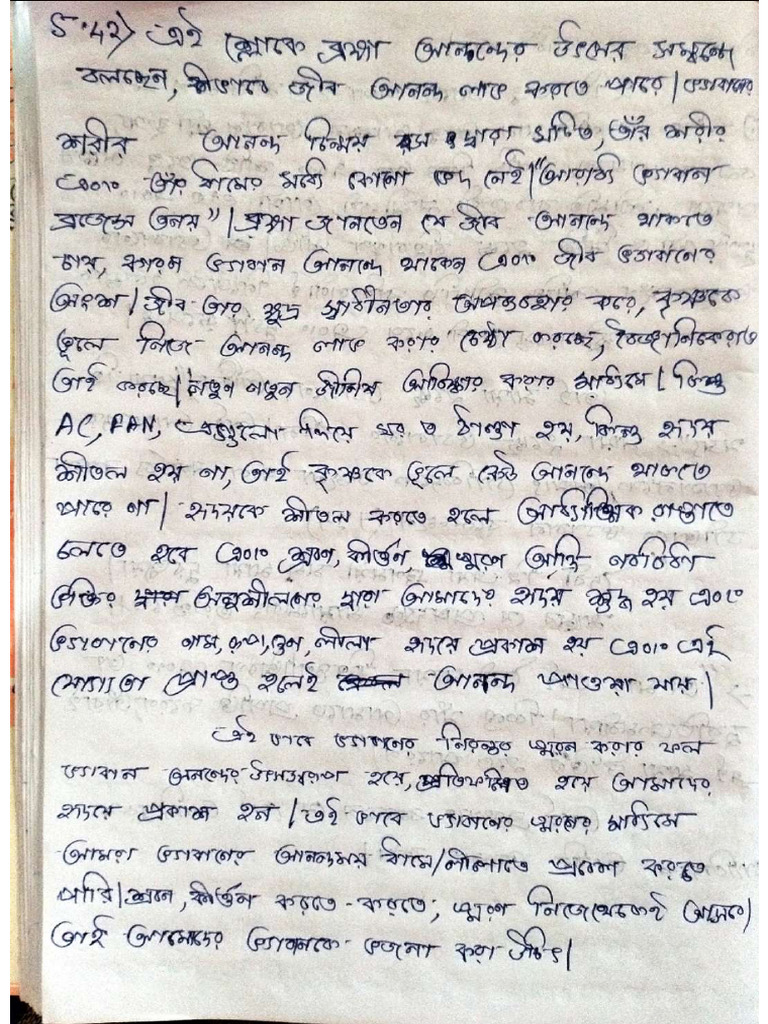 ৫.৪২) এই শ্লোকে ব্রহ্মা আনন্দের উৎসের সম্বন্ধে
বলছেন, কীভাবে জীব আনন্দ লাভ করতে পারে। ভগবানের
শরীর আনন্দ চিন্ময় রস দ্বারা গঠিত, তাঁর শরীর
এবং তাঁর ধামের মধ্যে কোনো ভেদ নেই। "আরাধ্য ভগবান
ব্রজেন্দ্র তনয়"। ব্রহ্মা জানতেন যে জীব আনন্দে থাকতে
চায়, কারন ভগবান আনন্দে থাকেন এবং জীব ভগবানের
অংশ। জীব তার ক্ষুদ্র স্বাধীনতার অপব্যবহার করে, কৃষ্ণকে
ভুলে নিজে আনন্দ লাভ করার চেষ্টা করছে, বৈজ্ঞানিকেরাও
তাই করছে। নতুন নতুন জীনিষ আবিষ্কার করার মাধ্যমে। কিন্তু
AC, FAN, এগুলো দিয়ে ঘর ত ঠাণ্ডা হয়, কিন্তু হৃদয়
শীতল হয় না, তাই কৃষ্ণকে ভুলে কেউ আনন্দে থাকতে
পারে না। হৃদয়কে শীতল করতে হলে আধ্যাত্মিক রাস্তাতে
চলতে হবে এবং শ্রবণ, কীর্তন, স্মরণ আদি নববিধা
ভক্তির অনুশীলনের দ্বারা আমাদের হৃদয় শুদ্ধ হয় এবং
ভগবানের নাম, রূপ, গুন, লীলা হৃদয়ে প্রকাশ হয় এবং এই
যোগ্যতা প্রাপ্ত হলেই আনন্দ পাওয়া যায়।
এই ভাবে ভগবানের নিরন্তর স্মরন করার ফল
ভগবান আনন্দের উৎসস্বরূপ হয়ে, প্রতিফলিত হয়ে আমাদের
হৃদয়ে প্রকাশ হন। এই ভাবে ভগবানের স্মরণের মাধ্যমে
আমরা ভগবানের আনন্দময় ধামে/লীলাতে প্রবেশ করতে
পারি। শ্রবন, কীর্তন করতে-করতে, স্মরণ নিজেথেকেই আসবে।
তাই আমাদের ভগবানকে ভজনা করা উচিৎ।